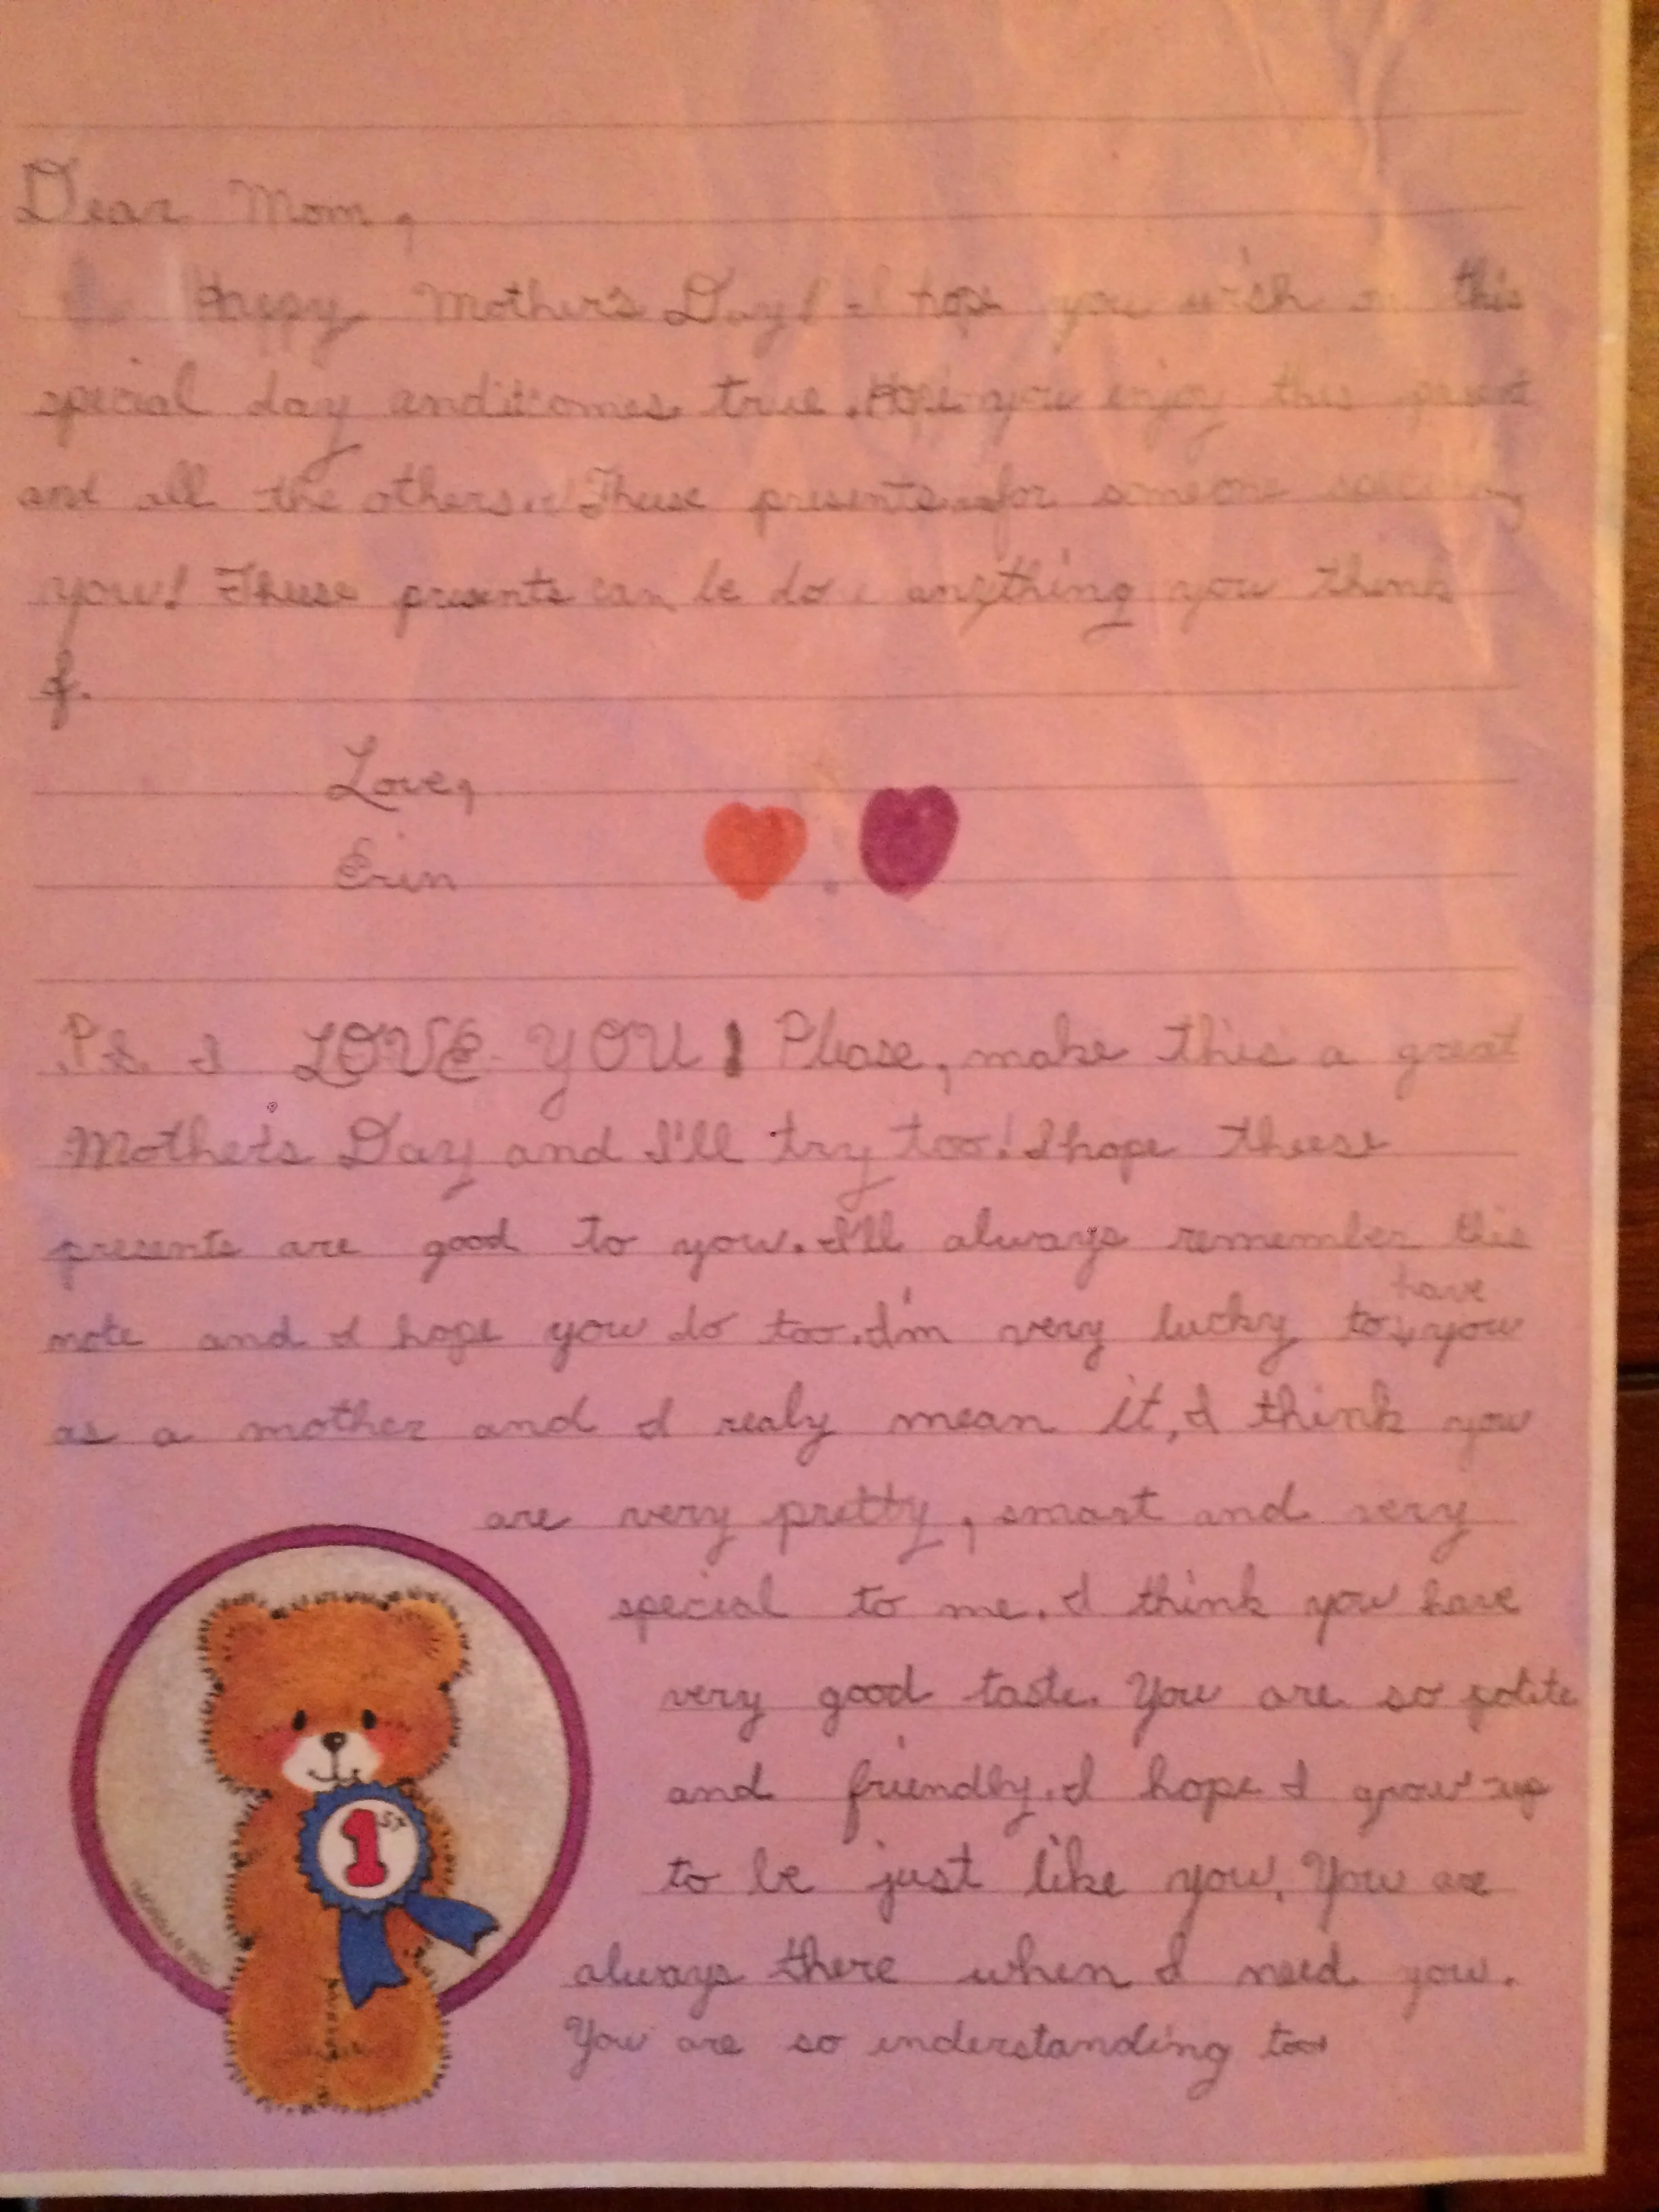 Dear Mom,
Happy Mother's Day! I hope you wish on this
special day and it comes true. Hope you enjoy this
and all the others. Theese presents for someone
you! Theese presents can be do anything you think
of.
Love,
Erin
P.S. I LOVE YOU! Please, make this a great
Mother's Day and I'll try too! I hope theese
presents are good to you. I'll always remember this
note and I hope you do too. I'm very lucky to have you
as a mother and I realy mean it, I think you
are very pretty, smart and very
special to me. I think you have
very good taste. You are so polite
and friendly. I hope I grow up
to be just like you. You are
always there when I need you.
You are so understanding too
1ST